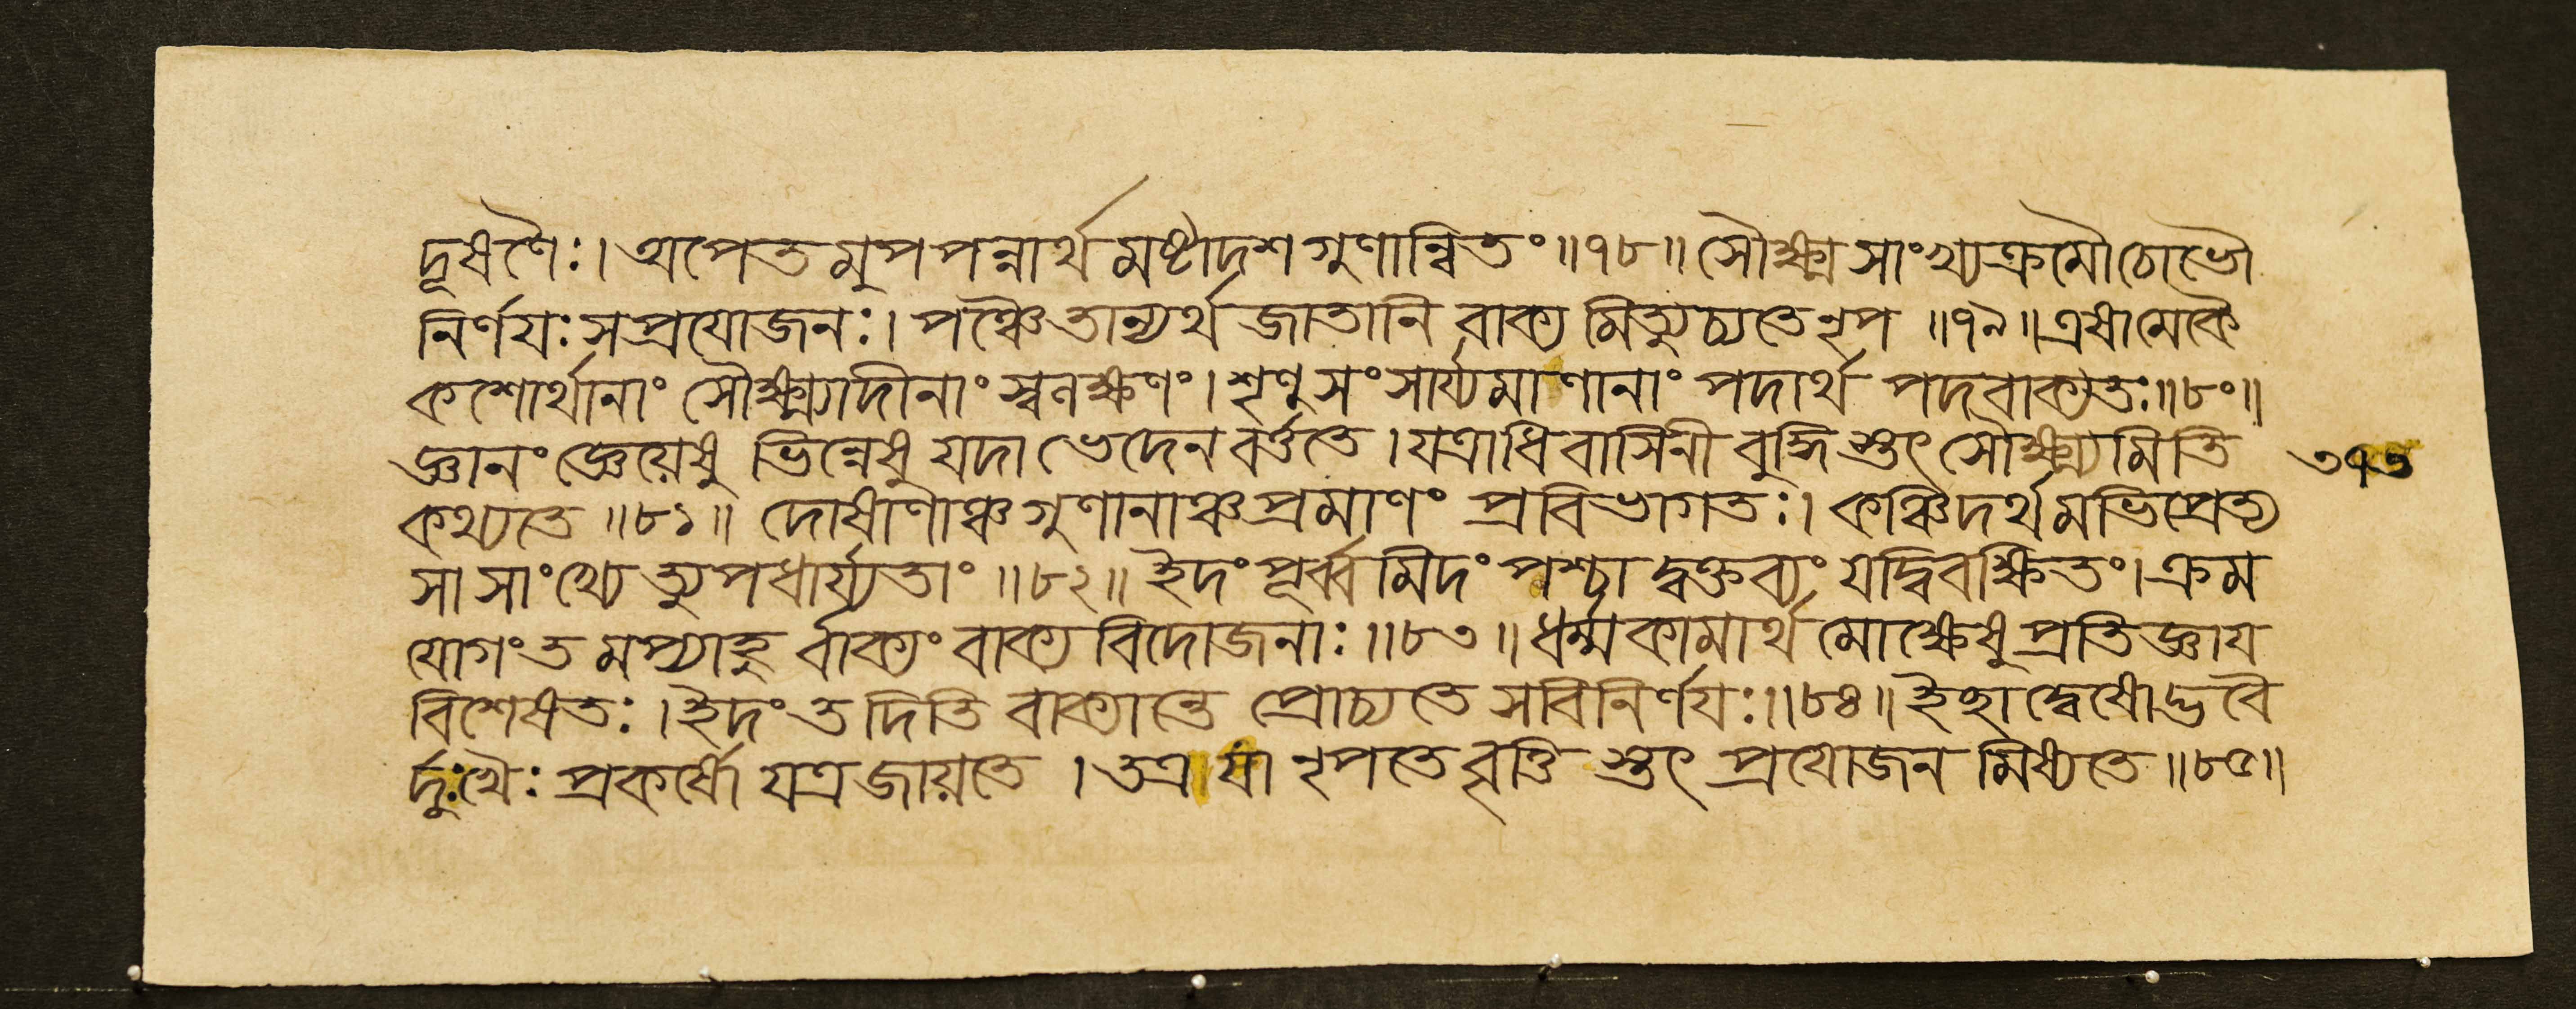 দূষণৈঃ। অপেতমুপপন্নার্থমষ্টাদশগুণান্বিতং॥৭৮॥ সৌক্ষ্ম্যসাংখ্যক্রমৌচোভৌ
নির্ণয়ঃ সপ্রযোজনঃ। পঞ্চৈতান্যর্থজাতানি বাক্যমিত্যুচ্যতে নৃপ ॥৭৯॥ এষামেকৈ
কশোর্থানাং সৌক্ষ্ম্যাদীনাং স্বলক্ষণং। শৃণু সংসার্য্যমাণানাং পদার্থ পদবাক্যতঃ॥৮০॥
জ্ঞানং জ্ঞেয়েষু ভিন্নেষু যদা ভেদেন বর্ত্ততে। যত্রাধিবাসিনী বুদ্ধিস্তৎ সৌক্ষ্ম্যমিতি
৩৭৩
কথ্যতে ॥৮১॥ দোষাণাঞ্চ গুণানাঞ্চ প্রমাণং প্রবিভাগতঃ। কঞ্চিদর্থমভিপ্রেত্য
সা সাংখ্যেত্যুপধার্য্যতাং ॥৮২॥ ইদং পূর্ব্বমিদং পশ্চাদ্বক্তব্যং যদ্বিবক্ষিতং। ক্রম
যোগং তমপ্যাহু র্বাক্যং বাক্যবিদোজনাঃ ॥৮৩॥ ধর্ম্মকামার্থ মোক্ষেষু প্রতিজ্ঞায
বিশেষতঃ। ইদং তদিতি বাক্যান্তে প্রোচ্যতে সবিনির্ণযঃ॥৮৪॥ ইহাদ্বেষোদ্ভবৈ
র্দুঃখৈঃ প্রকর্ষো যত্র জায়তে। তত্র যা নৃপতে বৃত্তিস্তৎ প্রযোজন মিষ্যতে ॥৮৫॥